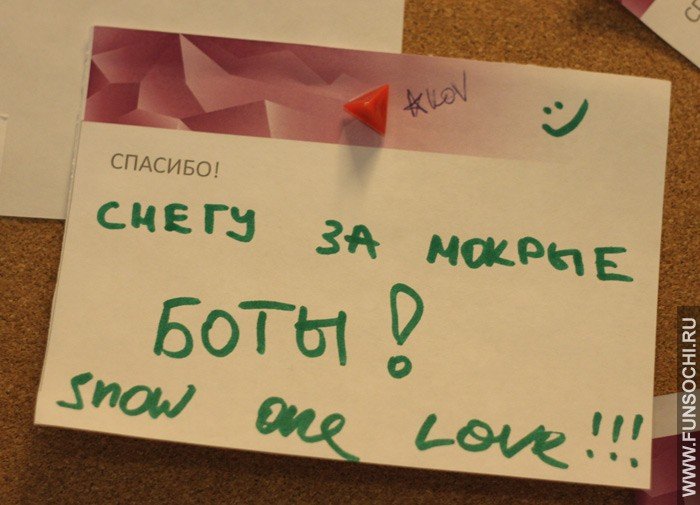 СПАСИБО!
СНЕГУ ЗА МОКРЫЕ
БОТЫ!
Snow one Love!!!
WWW.FUNSOCHI.RU